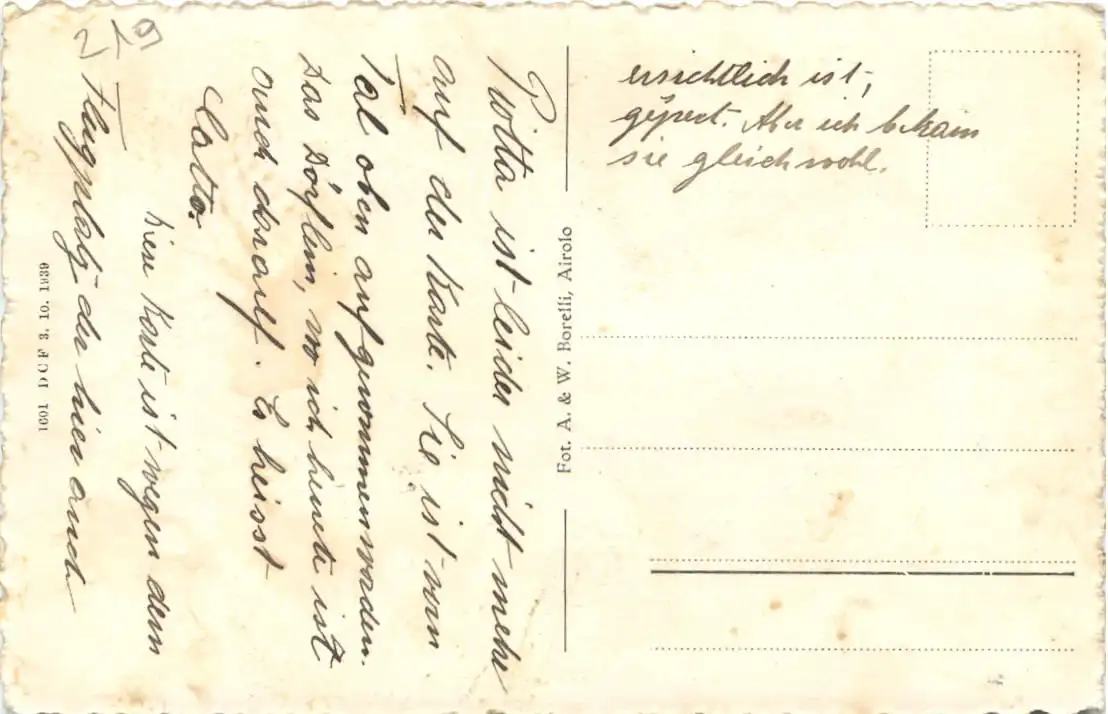 Piotta ist leider nicht mehr
auf der Karte. Sie ist vom
Tal oben aufgenommen worden.
Das Dörflein, wo ich hinete ist
auch darauf. Es heisst
Catto.
Diese Karte ist wegen dem
Flugplatz der hier auch
ersichtlich ist,
gsperrt. Aber ich bekam
sie gleichwohl.
219
Fot. A. & W. Borelli, Airolo
1601 DCF 3. 10. 1939